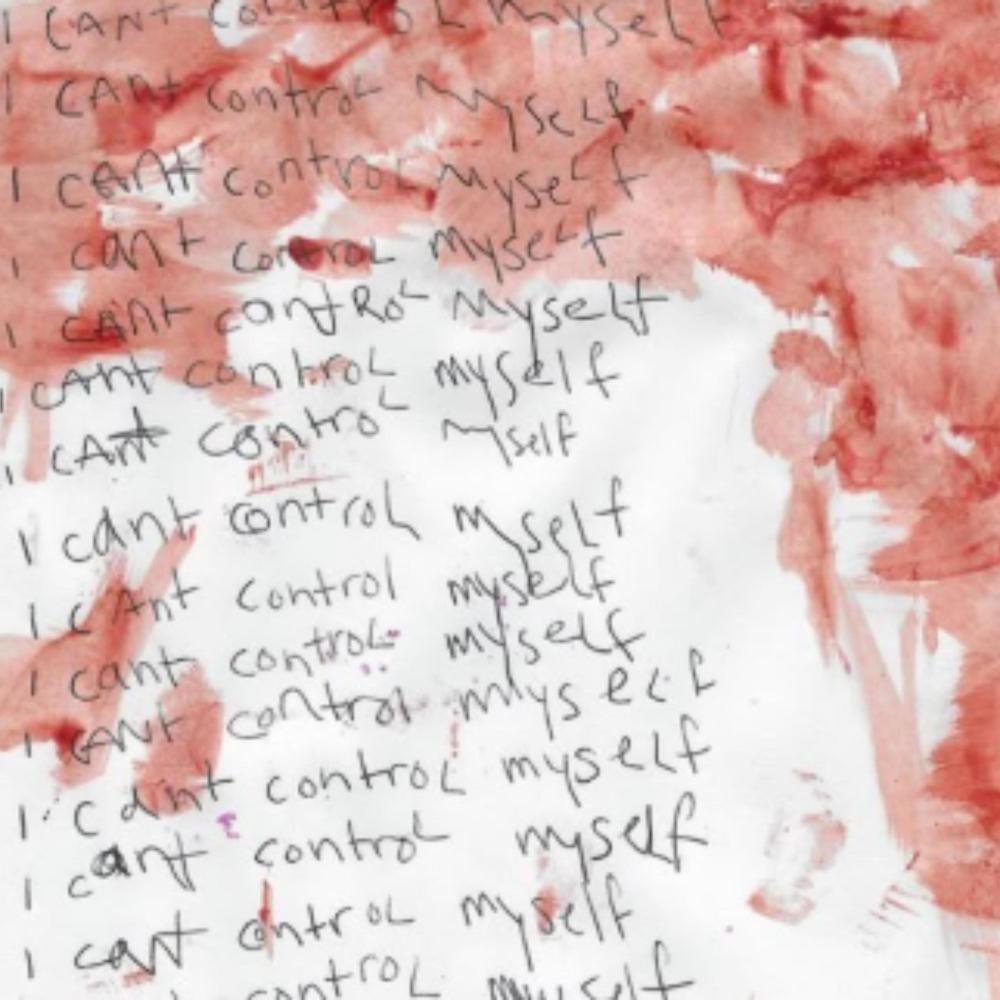 I CANT CONTROL MYSELF
I CANt CONtROL MYSELF
I CANt CONtROL MYSELF
I cant control MYSELF
I CANt contRoL MYself
I CANt control myself
I CANt control mself
I cant control mself
I CAnt Control myself
I cant control myself
I CANT control miyself
I cant control myself
I cant control myself
I cant control myself
control myself